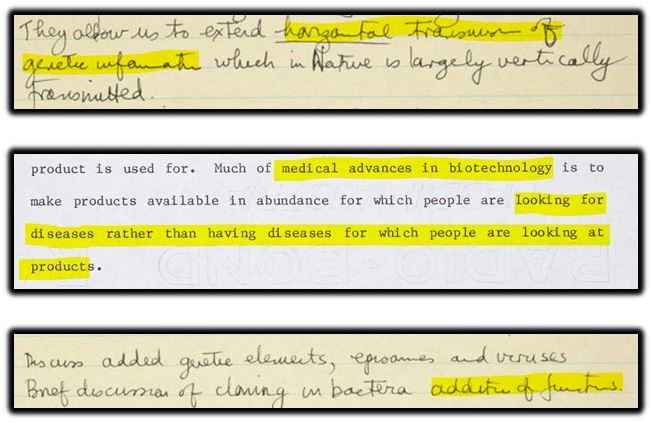 They allow us to extend horizontal transmission of
genetic information which in Nature is largely vertically
transmitted.
product is used for. Much of medical advances in biotechnology is to
make products available in abundance for which people are looking for
diseases rather than having diseases for which people are looking at
products.
Discuss added genetic elements, episomes and viruses
Brief discussion of cloning in bacteria addition of functions.